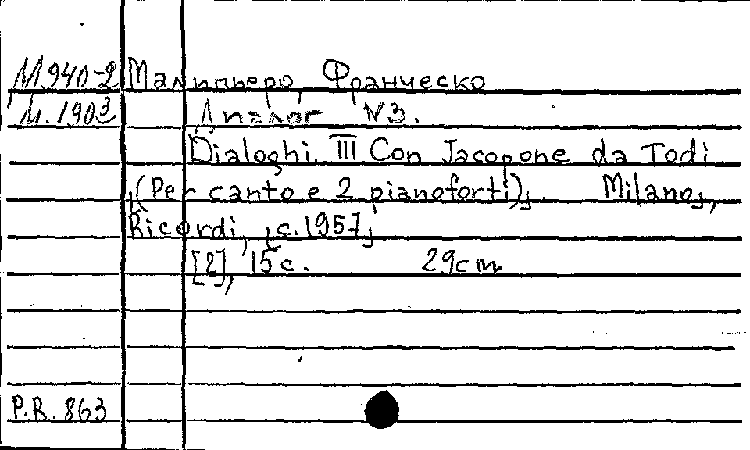 М940-2 Малипьеро, Франческо
М.1903 Диалог N3.
Dialoghi III Con Jacopone da Todi
(Per canto e 2 pianoforti), Milano,
Ricordi, [c.1957]
[2], 15c. 29cm
P.R. 863